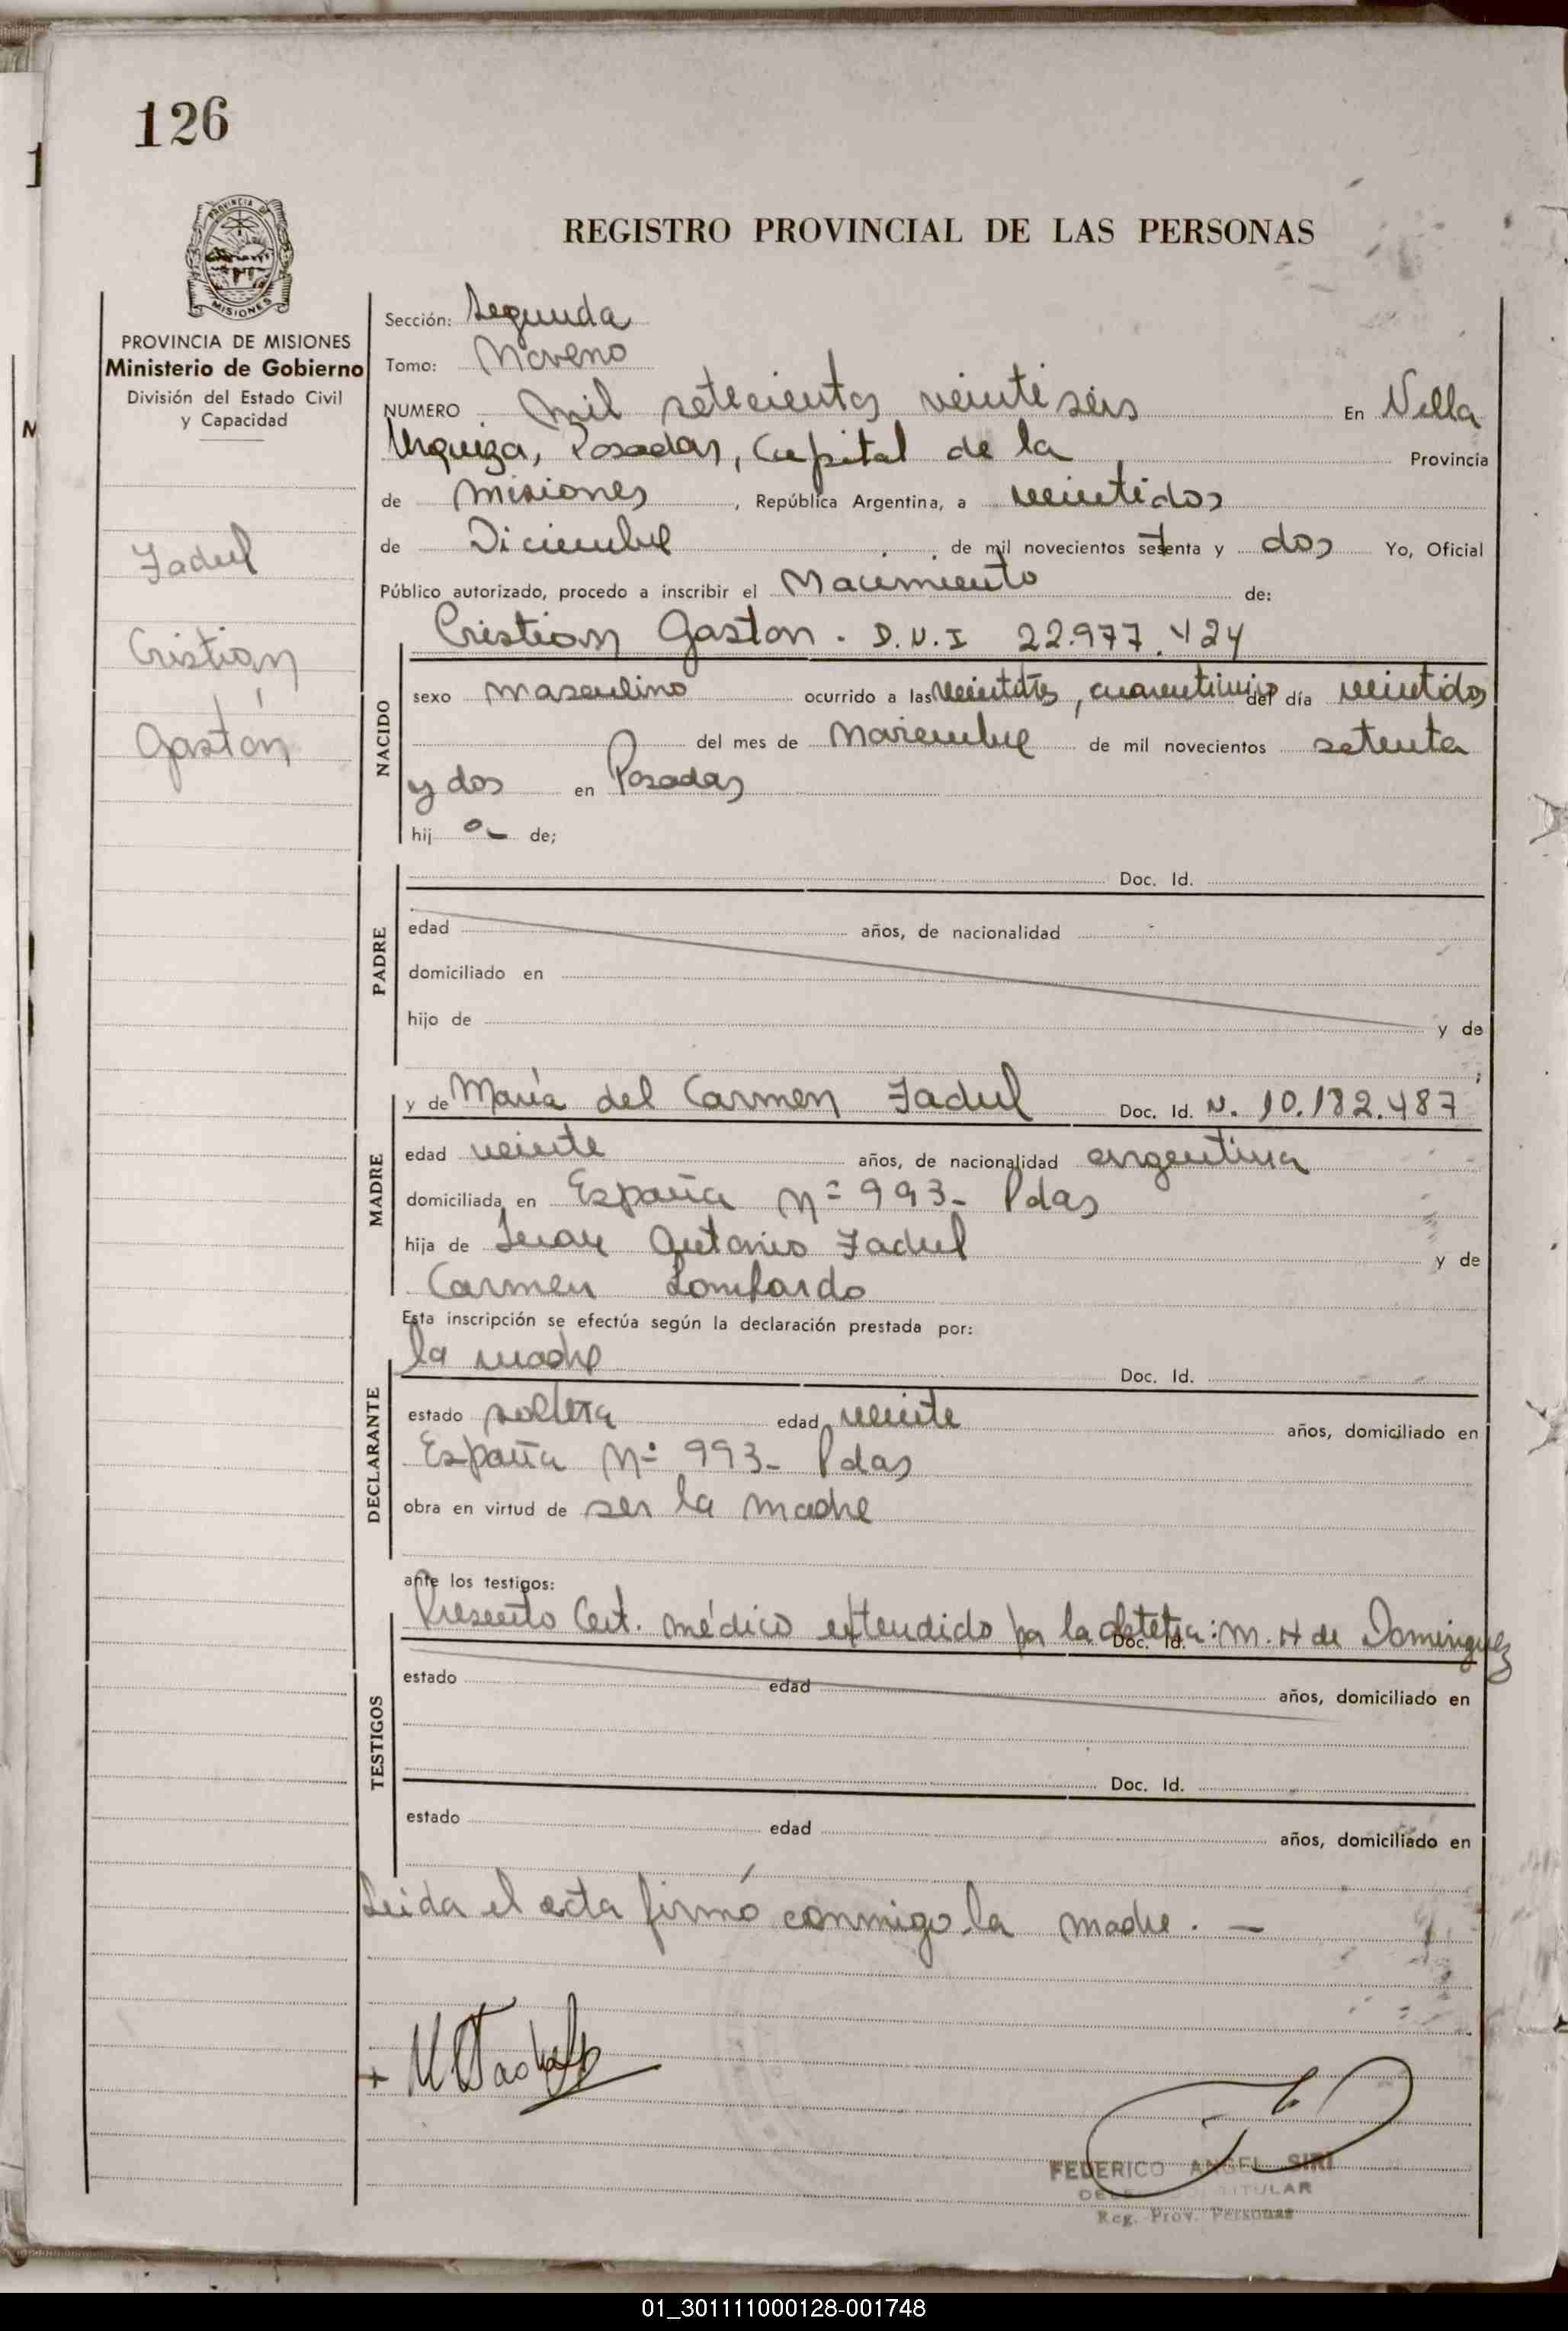 126
PROVINCIA DE MISIONES
Ministerio de Gobierno
División del Estado Civil
y Capacidad
Fadul
Cristián
Gastón
REGISTRO PROVINCIAL DE LAS PERSONAS
Sección: Segunda
Tomo: Noveno
NUMERO mil setecientos veintiseis En Villa
Urquiza, Posadas, Capital de la Provincia
de Misiones, República Argentina, a veintidos
de Diciembre de mil novecientos setenta y dos Yo, Oficial
Público autorizado, procedo a inscribir el Nacimiento de:
Cristian Gaston. D.N.I 22.977.424
NACIDO
sexo masculino ocurrido a las veintitrés, del día veintidos
del mes de Noviembre de mil novecientos setenta
y dos en Posadas
hij o de;
PADRE
Doc. Id.
edad años, de nacionalidad
domiciliado en
hijo de y de
;
MADRE
y de María del Carmen Fadul Doc. Id. N. 10.182.487
edad veinte años, de nacionalidad argentina
domiciliada en España Nº 993- Pdas
hija de Juan Antonio Fadul y de
Carmen Lombardo
Esta inscripción se efectúa según la declaración prestada por:
DECLARANTE
la madre Doc. Id.
estado soltera edad veinte años, domiciliado en
España Nº 993- Pdas
obra en virtud de ser la madre
ante los testigos:
TESTIGOS
Presento Cert. médico extendido por la obstetra: M. H de Dominguez
Doc. Id.
estado edad años, domiciliado en
Doc. Id.
estado edad años, domiciliado en
Leida el acta firmó conmigo la madre. —
FEDERICO ANGEL SIRI
TITULAR
Reg. Prov. Personas
01_301111000128-001748